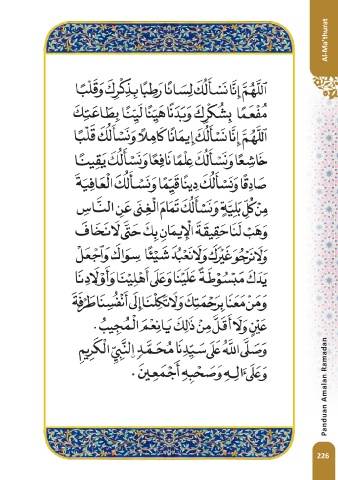 Al-Ma'thurat
اَللّٰهُمَّ إِنَّا نَسْأَلُكَ لِسَانًا رَطْبًا بِذِكْرِكَ وَقَلْبًا
مُفْعَمًا بِشُكْرِكَ وَبَدَنًا هَيِّنًا لَيِّنًا بِطَاعَتِكَ
اَللّٰهُمَّ إِنَّا نَسْأَلُكَ إِيمَانًا كَامِلًا وَنَسْأَلُكَ قَلْبًا
خَاشِعًا وَنَسْأَلُكَ عِلْمًا نَافِعًا وَنَسْأَلُكَ يَقِينًا
صَادِقًا وَنَسْأَلُكَ دِينًا قَيِّمًا وَنَسْأَلُكَ الْعَافِيَةَ
مِنْ كُلِّ بَلِيَّةٍ وَنَسْأَلُكَ تَمَامَ الْغِنَى عَنِ النَّاسِ
وَهَبْ لَنَا حَقِيقَةَ الْإِيمَانِ بِكَ حَتَّى لَا نَخَافَ
وَلَا نَرْجُوَ غَيْرَكَ وَلَا نَعْبُدَ شَيْئًا سِوَاكَ وَاجْعَلْ
يَدَكَ مَبْسُوْطَةً عَلَيْنَا وَعَلَى أَهْلِيْنَا وَأَوْلَادِنَا
وَمَنْ مَعَنَا بِرَحْمَتِكَ وَلَا تَكِلْنَا إِلَى أَنْفُسِنَا طَرْفَةَ
عَيْنٍ وَلَا أَقَلَّ مِنْ ذَلِكَ يَا نِعْمَ الْمُجِيبُ .
وَصَلَّى اللّٰهُ عَلَى سَيِّدِنَا مُحَمَّدٍ النَّبِيِّ الْكَرِيمِ
وَعَلَى اٰلِهِ وَصَحْبِهِ أَجْمَعِينَ .
Panduan Amalan Ramadan
226